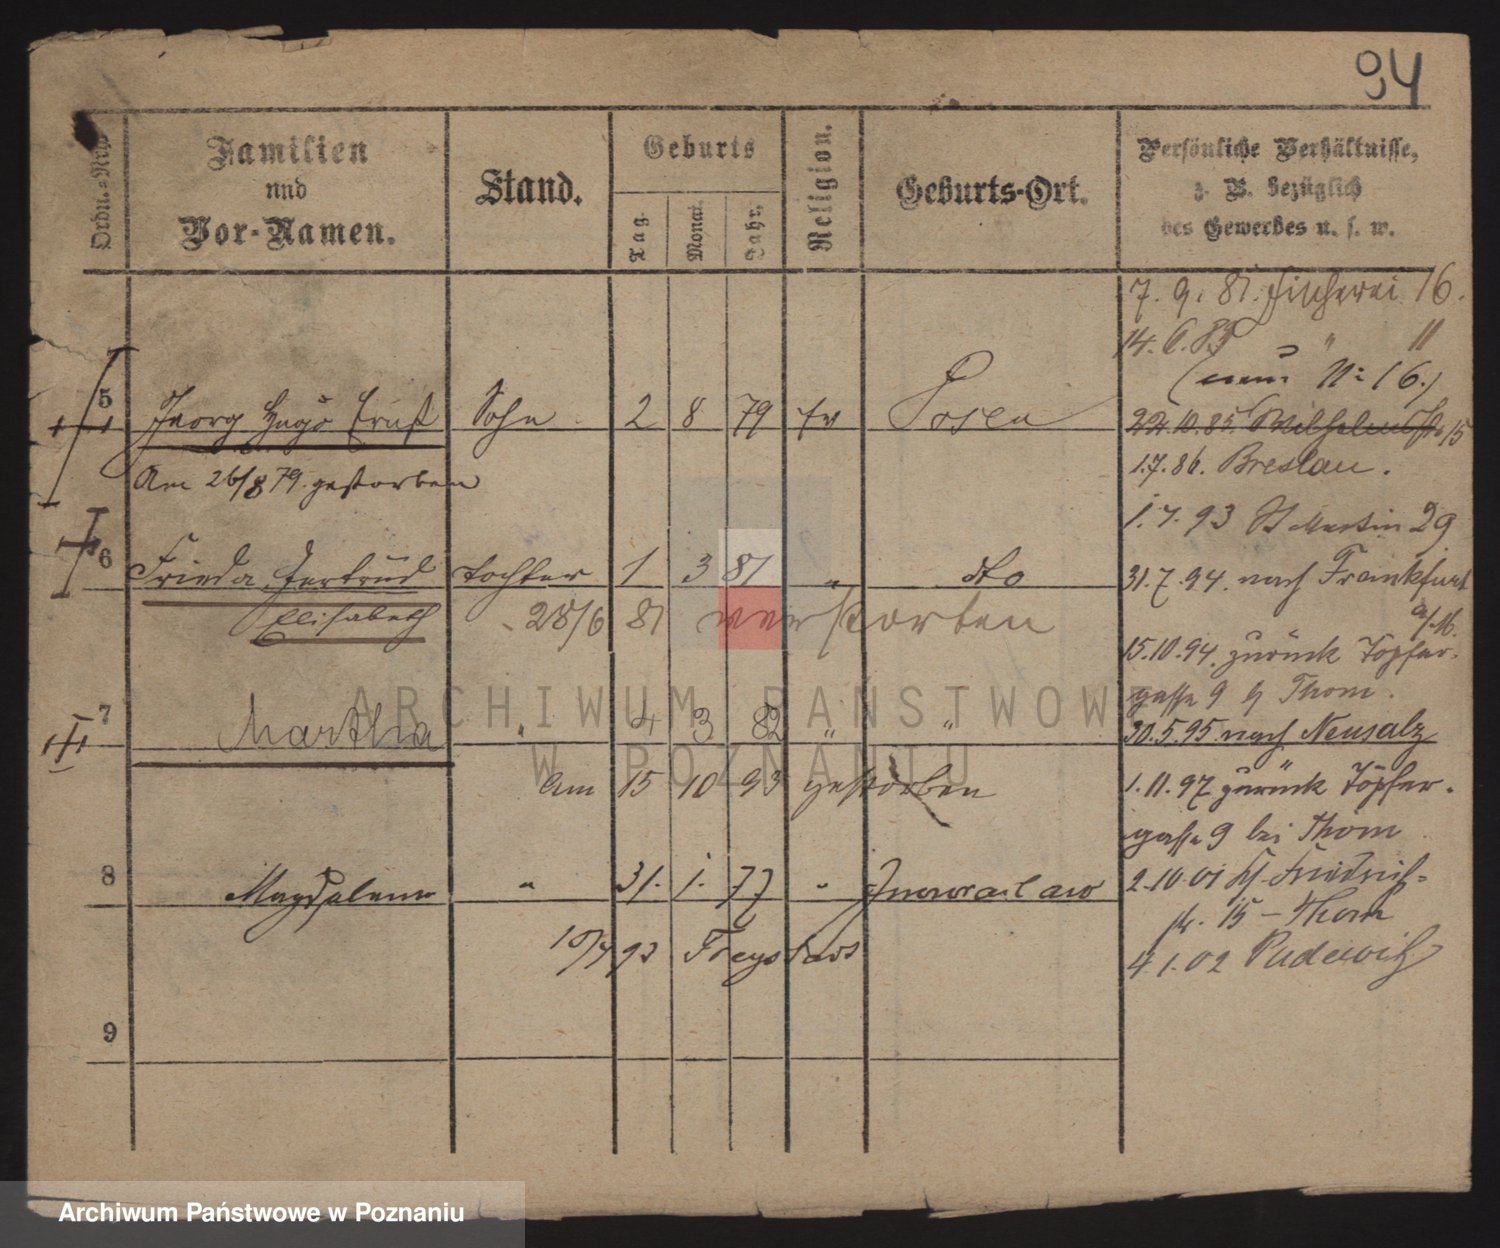 94
Ordn.-Nro.
Familien
und
Vor-Namen.
Stand.
Geburts
Tag.
Monat.
Jahr.
Religion.
Geburts-Ort.
Persönliche Verhältnisse,
z. B. bezüglich
des Gewerbes u. s. w.
5 Georg Hugo Ernst Sohn 2 8 79 ev Posen
Am 26/8 79. gestorben
6 Frieda Gertrud Tochter 1 3 81 " dto
Elisabeth
28/6 81 verstorben
7 Martha " 4 3 82 " "
am 15 10 93 gestorben
8 Magdalena " 31. 1. 77 " Inowraclaw
10/4 93 Freystadt
9
7. 9. 81. Fischerei 16.
14. 6. 85 " 11
(neu N: 16.)
22.10.85. Wilhelmstr 15
1.7.86. Breslau.
1.7.93 St Martin 29
31.7.94. nach Frankfurt
a/M.
15.10.94. zurück Töpfer-
gasse 9 b Thom.
30.5.95. nach Neusalz
1.11.97 zurück Töpfer-
gasse 9 bei Thom
2.10.01 Friedrich-
str. 15 - Thom
4 1.02 Pudewitz
ARCHIWUM PAŃSTWOWE
W POZNANIU
Archiwum Państwowe w Poznaniu